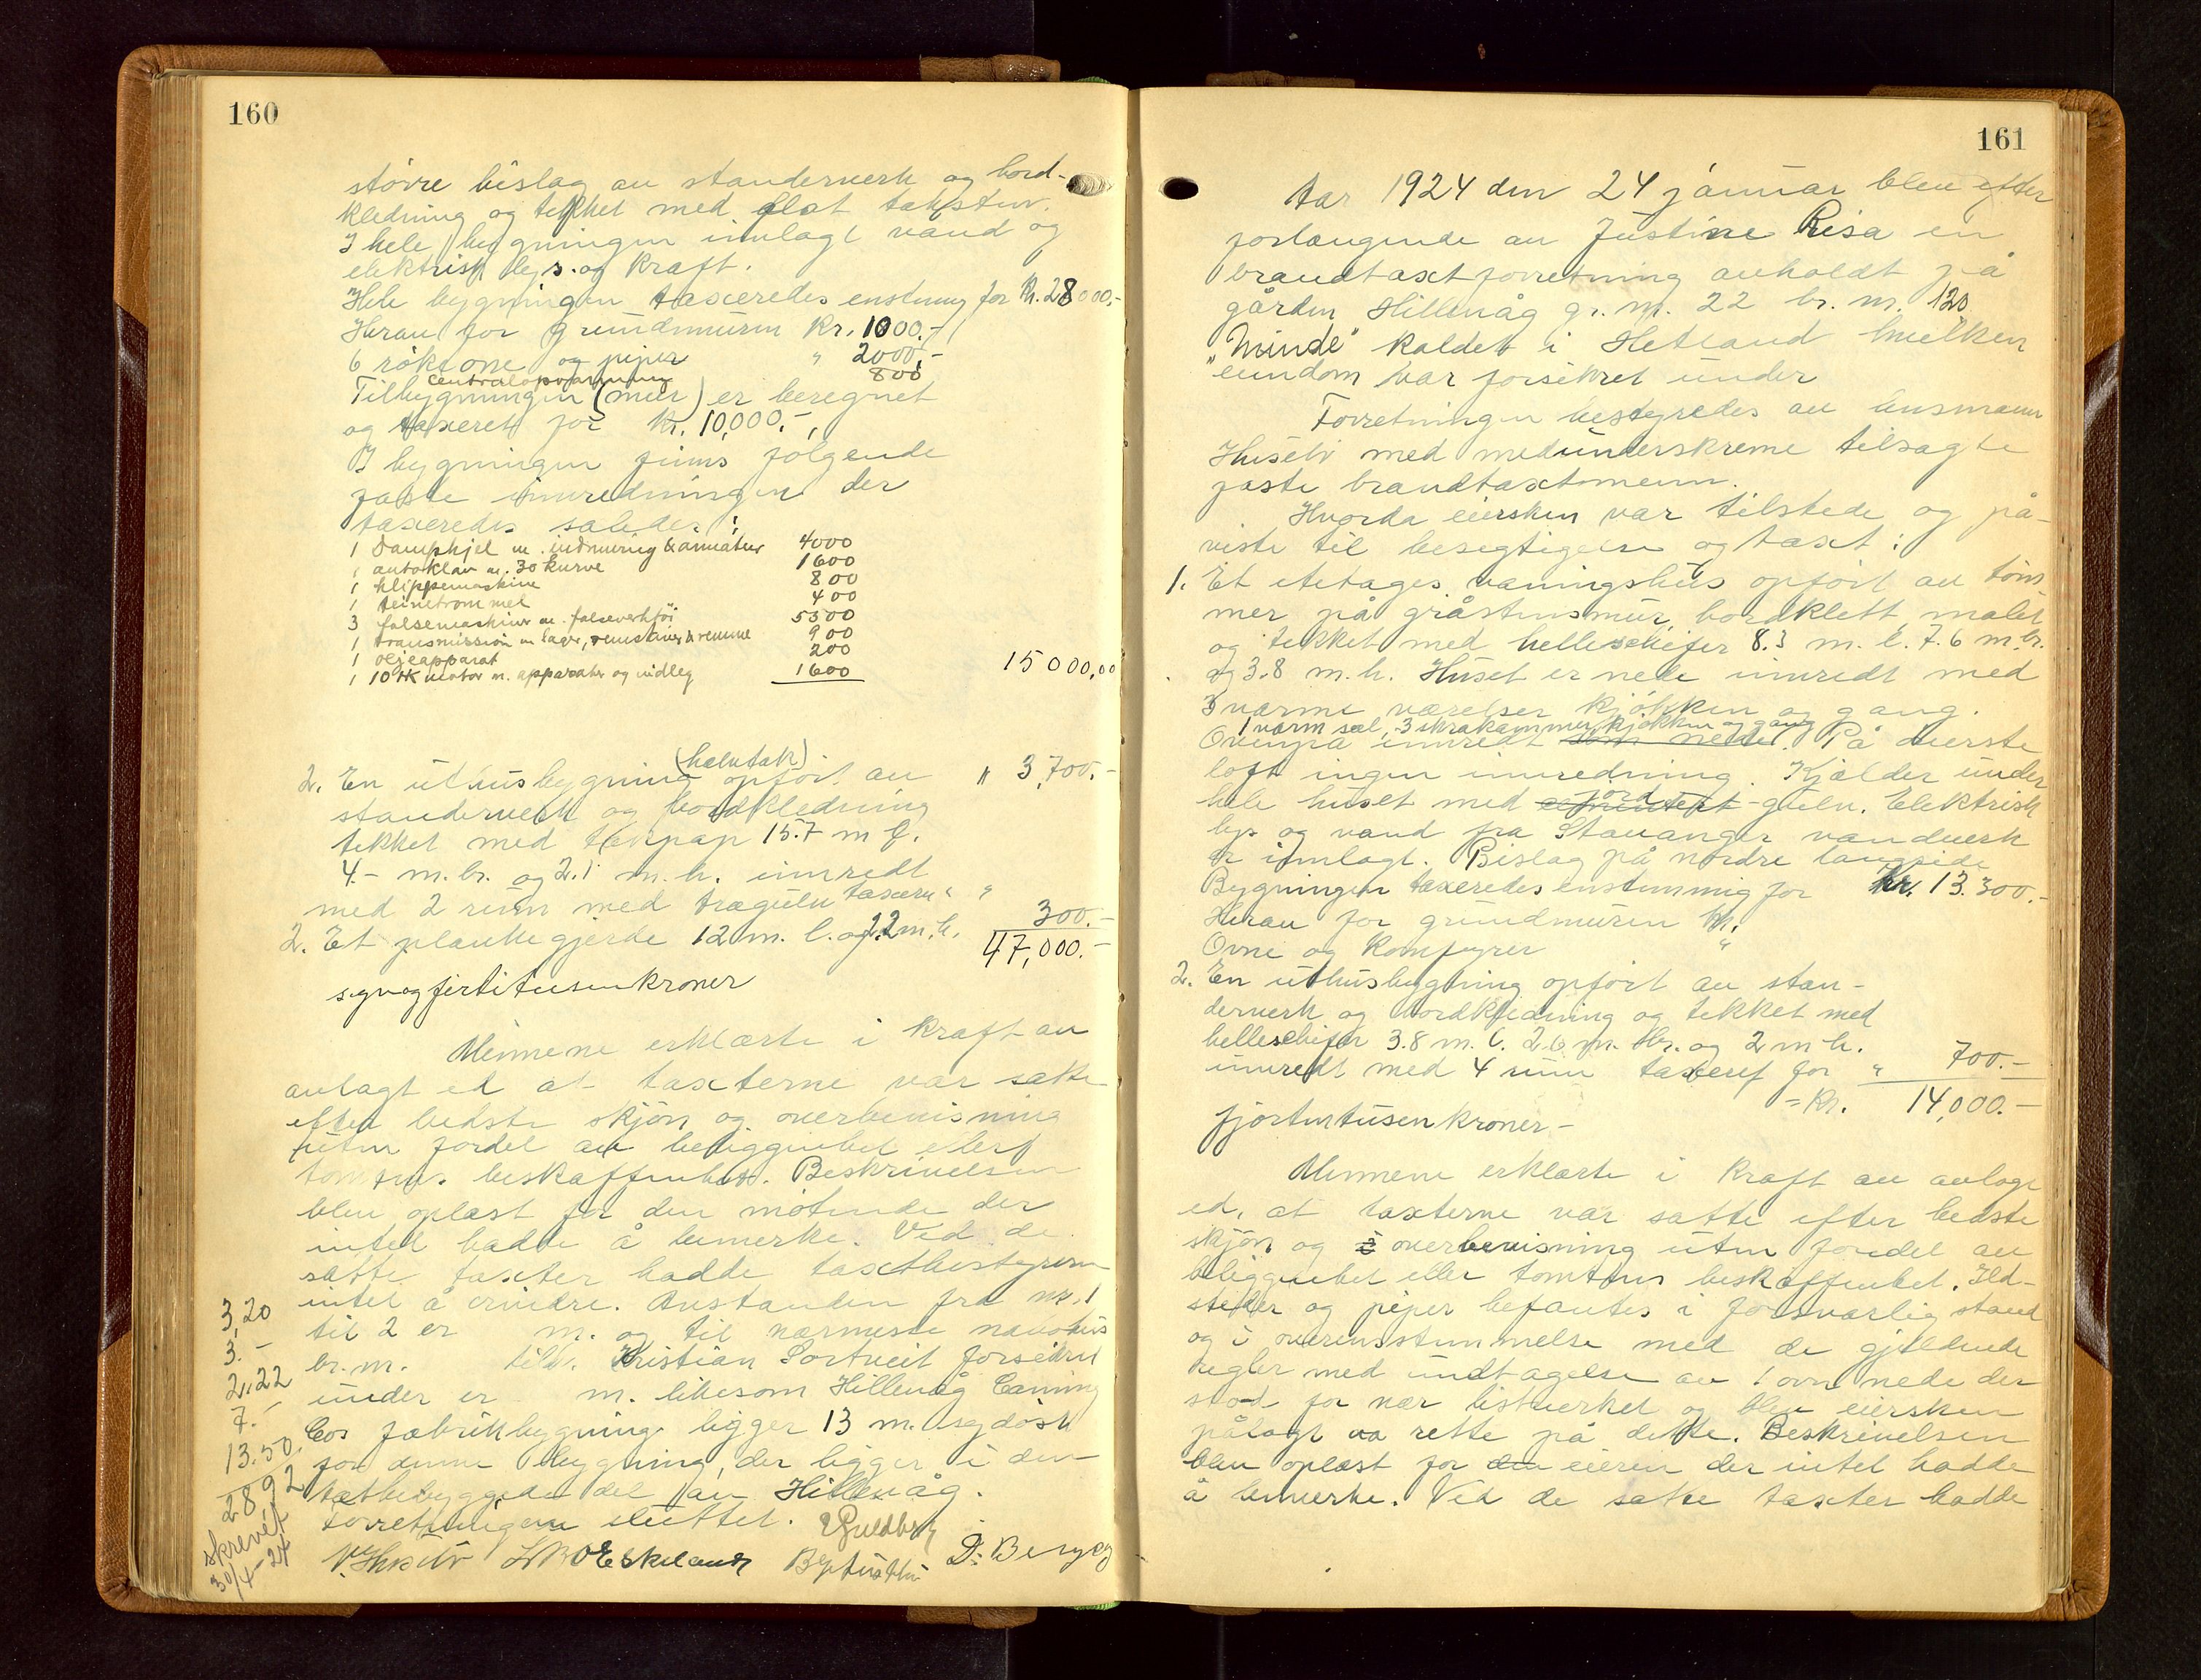 160
større bislag av standerverk og bord-
kledning og tekket med flat takstur.
I hele bygningen innlagt vand og
elektrisk lys. og kraft.
Hele bygningen taxeredes enstemmig for kr. 28000,-
Herav for grundmuren kr. 1000.-
6 røkeovne og piper " 2000.-
Centralopvarmning 800
Tilbygningen (mur) er beregnet
og taxeret for kr. 10,000.-,
I bygningen finns følgende
faste innredninger der
taxeredes således:
1 Dampkjel m. indmuring & armatur 4000
1 autoklav m. 30 kurve 1600
1 klippemaskine 800
1 teinetrommel 400
3 falsemaskiner m. falseverktøi 5500
1 transmission m lager, remskiver & remme 900
1 oljeapparat 200
1 10 HK motor m. apparater og indleg 1600 15000,00
2. En uthusbygning (halvtak) opført av " 3,700.-
standerverk og bordkledning
tekket med tærpap 15.7 m l.
4.- m. br. og 2.1 m. h. innredt
med 2 rum med trægulv taxeres " "
2. Et plankegjerde 12 m. l. og 2.2 m. h. 300.-
47,000.-
syvogfirtitusenkroner
Mennene erklærte i kraft av
avlagt ed at taxterne var satte
efter bedste skjøn og overbevisning
uten fordel av beliggenhet eller
tomtens beskaffenhet. Beskrivelsen
blev oplæst for den møtende der
intet hadde å bemerke. Ved de
satte taxter hadde taxtbestyreren
intet å erindre. Avstanden fra nr. 1
til 2 er m. og til nærmeste nabohus
br. nr. tilh. Kristian Sortveit forsikret
under er m. likesom Hillevåg Caning
Cos fabrikbygning ligger 13 m. sydøst
for denne bygning, der ligger i den
tætbebyggede del av Hillevåg.
Forretningen sluttet. Guldberg
V. Husebø Eskeland D. Berge
3,20
3.-
2,22
7.-
13.50
28 92
skrevet
30/4-24
161
Aar 1924 den 24 januar blev efter
forlangende av Justine Risa en
brandtaxtforretning avholdt på
gården Hillevåg gr. nr. 22 br. nr. 120
"Minde" kaldet i Hetland hvilken
eiendom var forsikret under
Forretningen bestyredes av lensmann
Husebø med medunderskrevne tilsagte
faste brandtaxtmenn.
Hvorda eiersken var tilstede og på-
viste til besigtigelse og taxt:
1. Et etetages våningshus opført av tøm
mer på gråstensmur, bordklett, malet
og tekket med helleschifer 8.3 m. l. 7.6 m. br.
og 3.8 m. h. Huset er nede innredt med
3 varme værelser kjøkken og gang.
1 varm sal, 3 skrakammer, kjøkken og gang
Ovenpå innredt som nede. På øverste
loft ingen innredning. Kjælder under
jord
hele huset med cementert-gulv. Elektrisk
lys og vand fra Stavanger vandverk
er innlagt. Bislag på nordre langside
Bygningen taxeredes enstemmig for kr. 13.300.-
Herav for grundmuren kr.
Ovne og komfyrer "
2. En uthusbygning opført av stan-
derverk og bordkledning og tekket med
helleschifer 3.8 m. l. 2.6 m. br. og 2 m h.
innredt med 4 rum taxeret for " 700.-
= Kr. 14,000.-
fjortentusenkroner-
Mennene erklærte i kraft av avlagt
ed, at taxterne var satte efter bedste
skjøn og i overbevisning uten fordel av
beliggenhet eller tomtens beskaffenhet. Ild-
steder og piper befantes i forsvarlig stand
og i overensstemmelse med de gjeldende
regler med undtagelse av 1 ovn nede der
stod for nær listverket og blev eiersken
pålagt va rette på dette. Beskrivelsen
blev oplæst for den eieren der intet hadde
å bemerke. Ved de satte taxter hadde